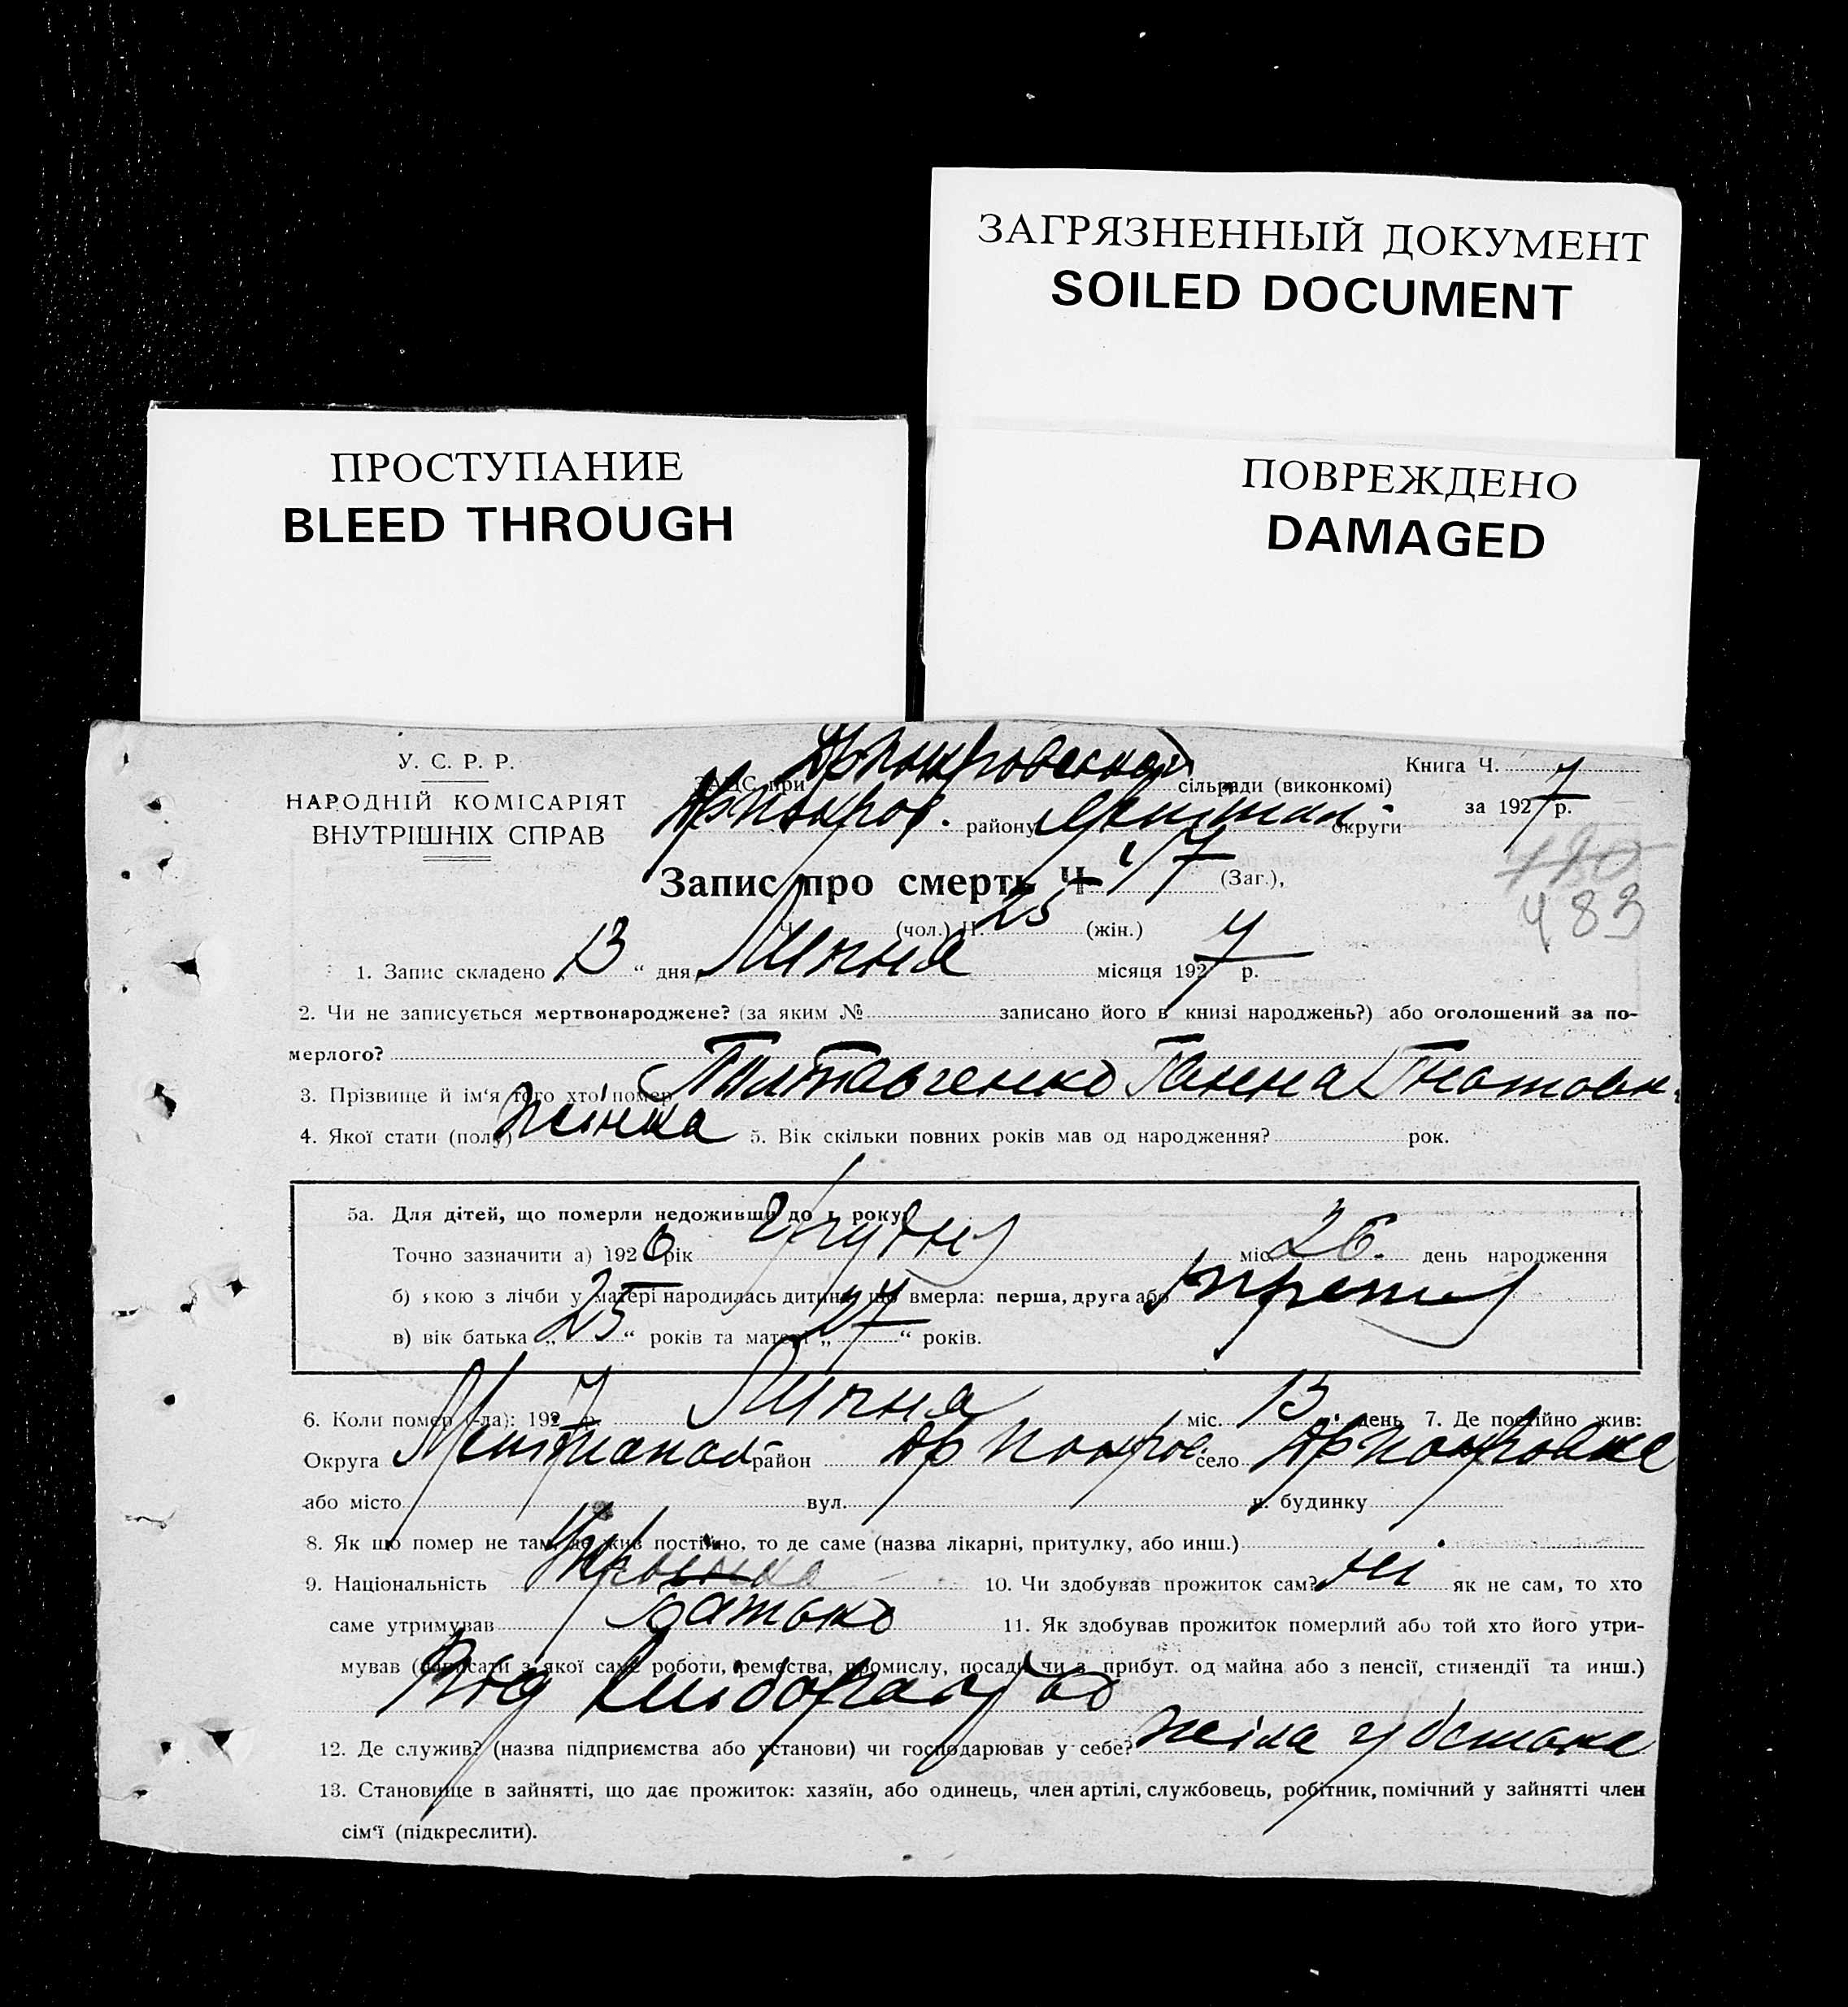 ЗАГРЯЗНЕННЫЙ ДОКУМЕНТ
SOILED DOCUMENT
ПРОСТУПАНИЕ
BLEED THROUGH
ПОВРЕЖДЕНО
DAMAGED
У. С. Р. Р.
НАРОДНІЙ КОМІСАРІЯТ
ВНУТРІШНІХ СПРАВ
ЗАГС при сільради (виконкомі)
району округи
Книга Ч.
за 1927 р.
Запис про смерть Ч. 17 (Заг.),
483
Ч. (чол.) Ч. 25 (жін.)
1. Запис складено 13 “ дня Липня місяця 1927 р.
2. Чи не записується мертвонароджене? (за яким № записано його в книзі народжень?) або оголошений за по-
мерлого?
3. Прізвище й ім‘я того хто помер Полтавченко Ганна Гнатовн.
4. Якої стати (полу) жінка 5. Вік скільки повних років мав од народження? рок.
5а. Для дітей, що померли недоживши до 1 року.
Точно зазначити а) 1926 рік Грудня міс. 26. день народження
б) якою з лічби у матері народилась дитина, що вмерла: перша, друга або третя
в) вік батька „ 25 “ років та матері „ 27 “ років.
6. Коли помер (-ла): 1927 р. Липня міс. 13. день 7. Де постійно жив:
Округа район село
або місто вул. ч. будинку
8. Як що помер не там, де жив постійно, то де саме (назва лікарні, притулку, або инш.)
9. Національність Українка 10. Чи здобував прожиток сам? ні як не сам, то хто
саме утримував батько 11. Як здобував прожиток померлий або той хто його утри-
мував (записати з якої саме роботи, ремества, промислу, посади чи з прибут. од майна або з пенсії, стипендії та инш.)
Від
12. Де служив? (назва підприємства або установи) чи господарював у себе? жіла у батька
13. Становище в зайнятті, що дає прожиток: хазяїн, або одинець, член артілі, службовець, робітник, помічний у зайнятті член
сім‘ї (підкреслити).